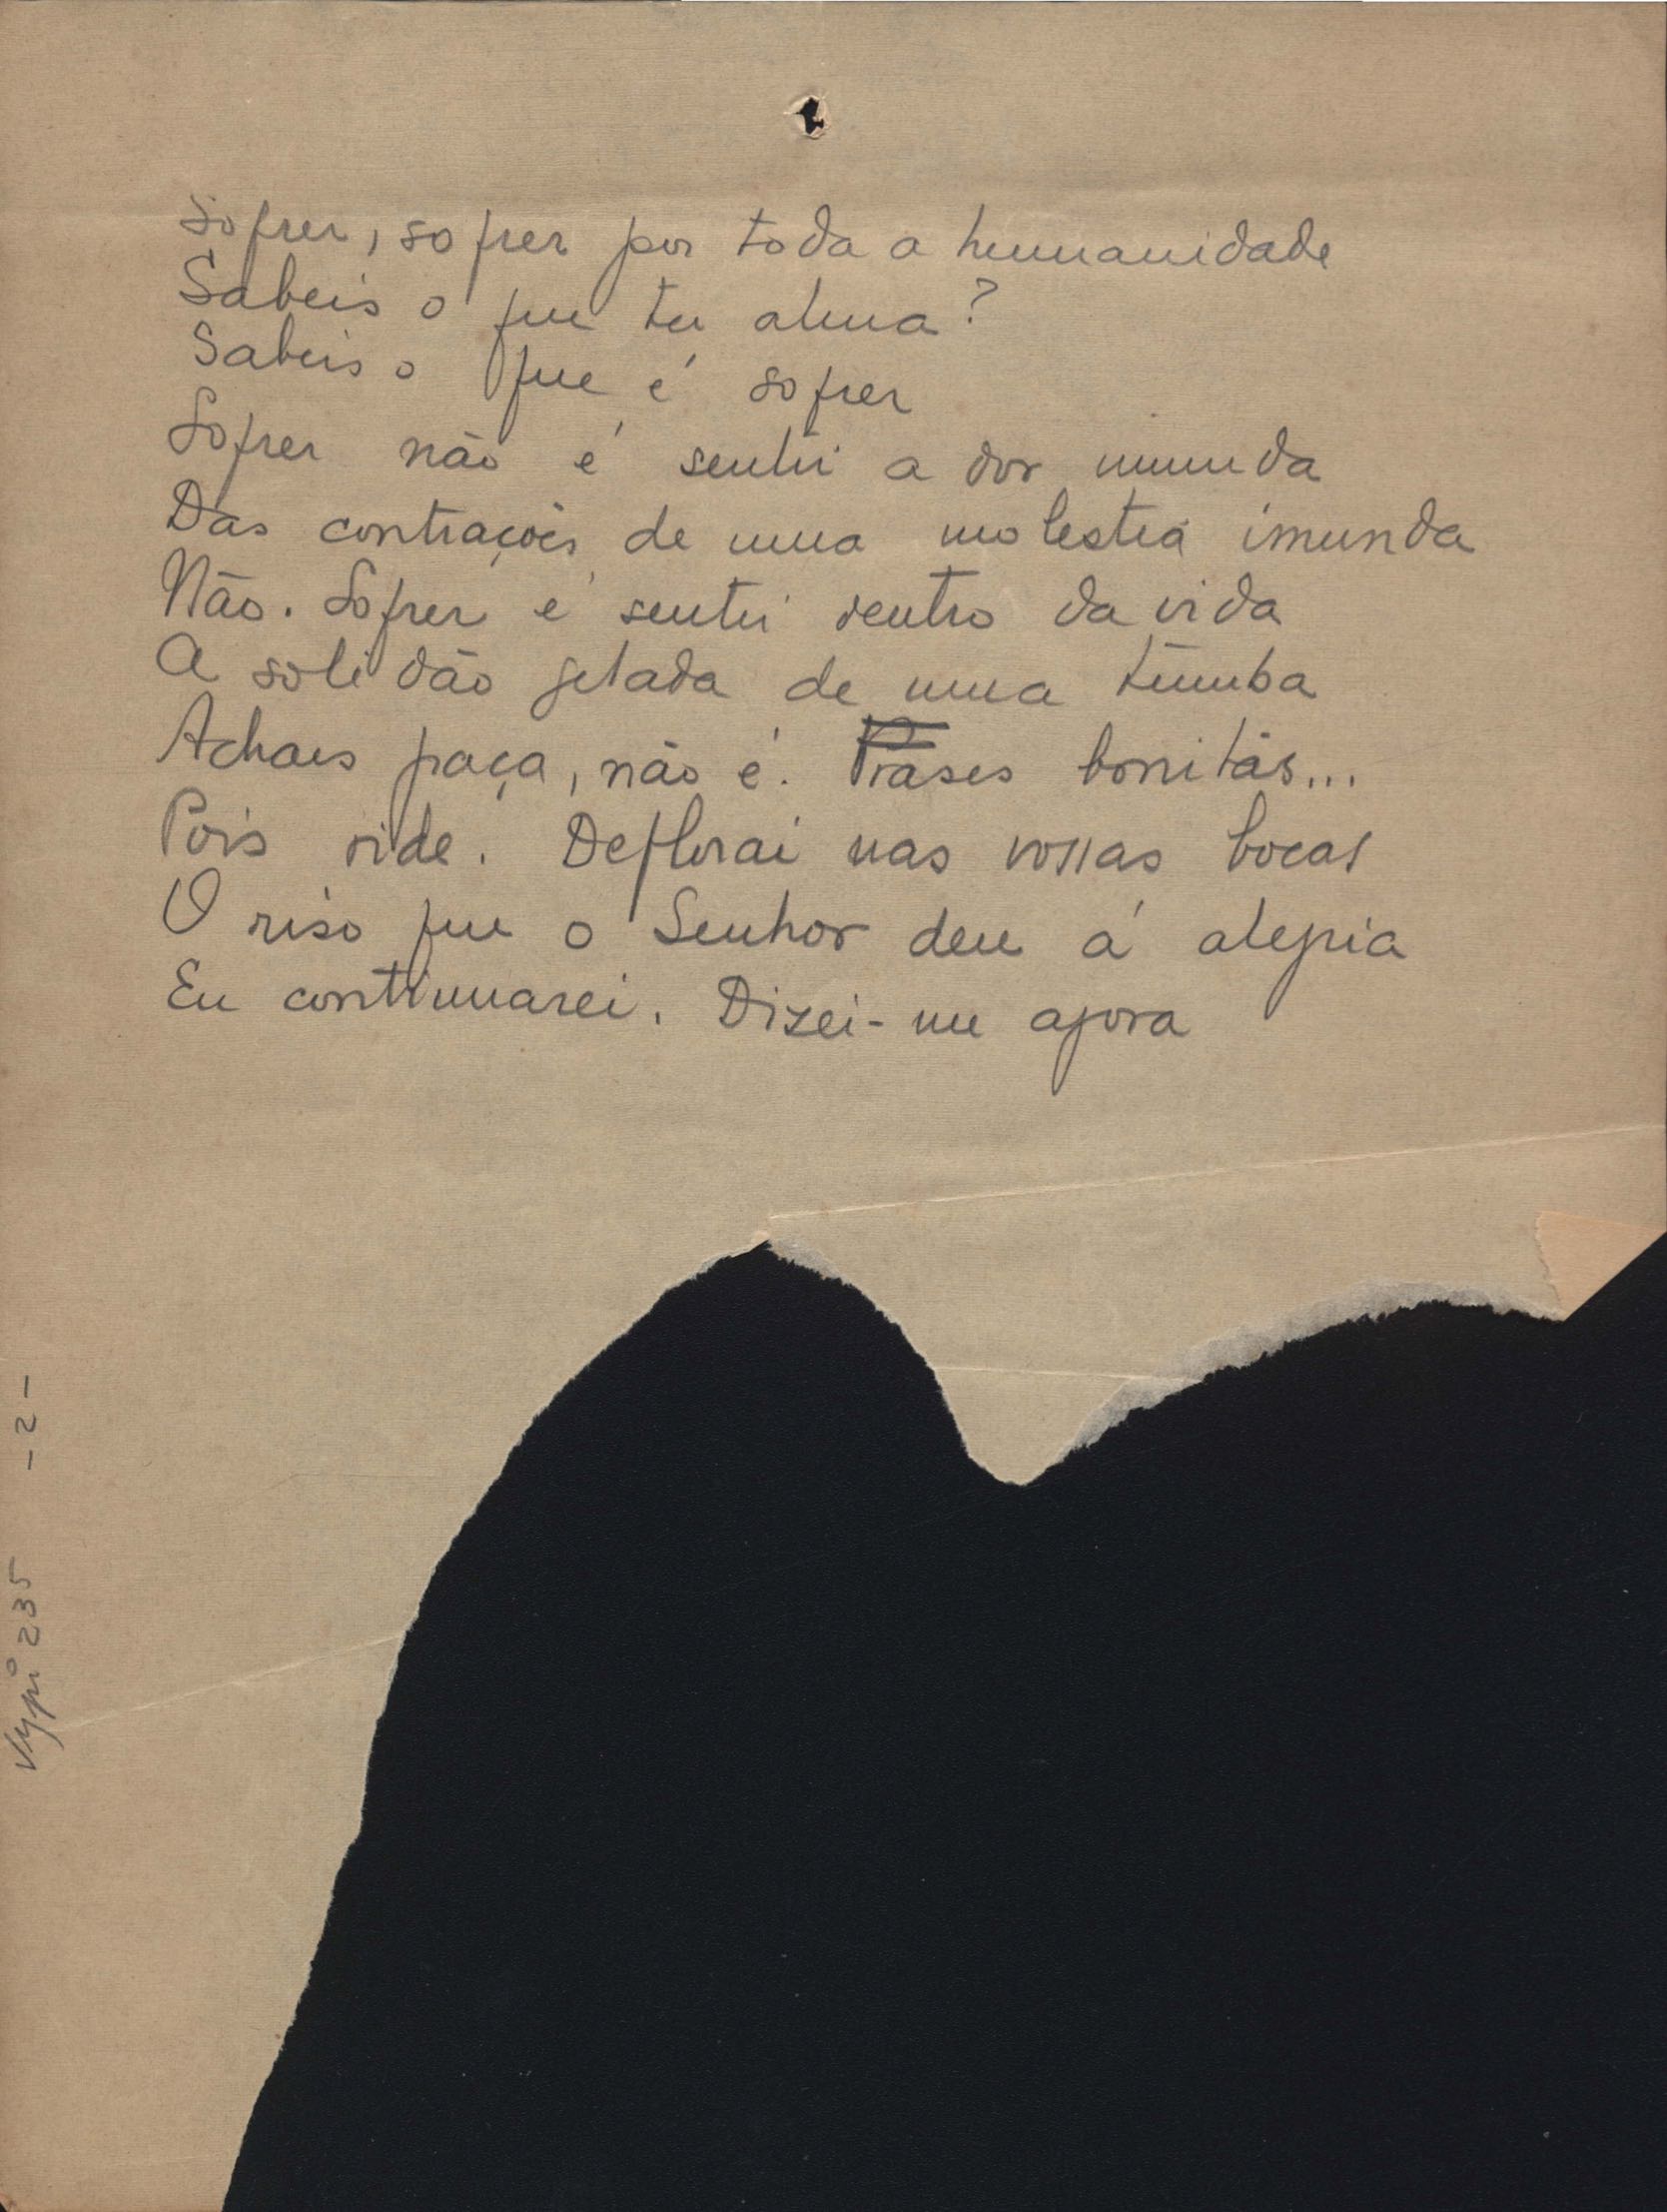 Sofrer, sofrer por toda a humanidade
Sabeis o que ter alma?
Sabeis o que é sofrer
Sofrer não é sentir a dor
Das contrações de uma molestia imunda
Não. Sofrer é sentir dentro da vida
A solidão gelada de uma tumba
Achais graça, não é. Frases bonitas...
Pois ride. Deflorai nas vossas bocas
O riso que o Senhor deu á alegria
Eu continuarei. Dizei-me agora
-2-
235